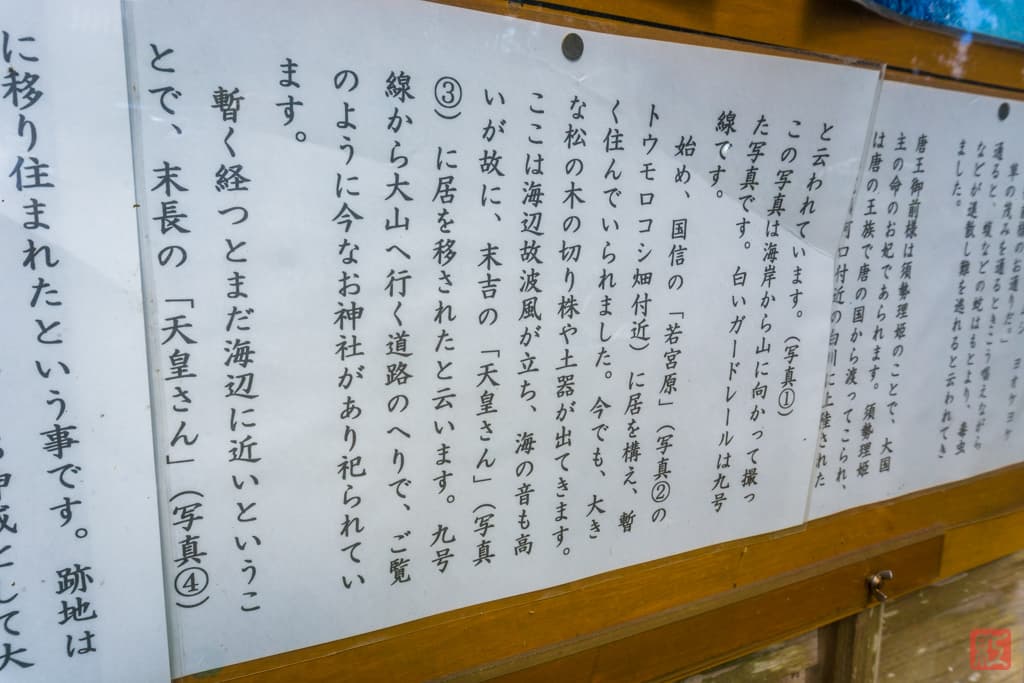 草の茂みを通るときこう唱えながら
通ると、蝮などの蛇はもとより、毒虫
などが退散し難を逃れると云われてき
ました。
唐王御前様は須勢理姫のことで、大国
主の命のお妃であられます。須勢理姫
は唐の王族で唐の国から渡ってこられ、
河口付近の白川に上陸された
と云われています。（写真①）
この写真は海岸から山に向かって撮っ
た写真です。白いガードレールは九号
線です。
始め、国信の「若宮原」（写真②の
トウモロコシ畑付近）に居を構え、暫
く住んでいられました。今でも、大き
な松の木の切り株や土器が出てきます。
ここは海辺故波風が立ち、海の音も高
いが故に、末吉の「天皇さん」（写真
③）に居を移されたと云います。九号
線から大山へ行く道路のへりで、ご覧
のように今なお神社があり祀られてい
ます。
暫く経つとまだ海辺に近いというこ
とで、末長の「天皇さん」（写真④）
に移り住まれたという事です。跡地は
として大